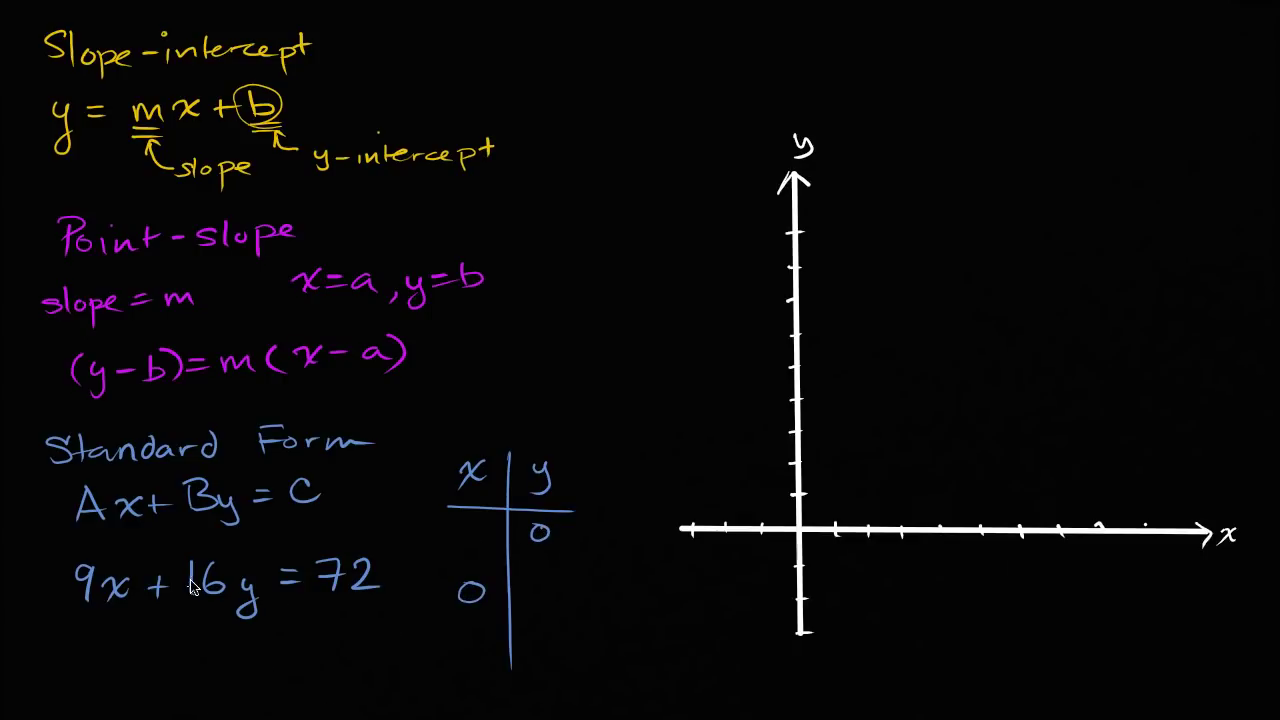 Slope-intercept
y = mx + b
slope
y-intercept
Point-slope
slope = m
x=a, y=b
(y-b)=m(x-a)
Standard Form
Ax+By=C
9x+16y=72
x y
0
0
y
x